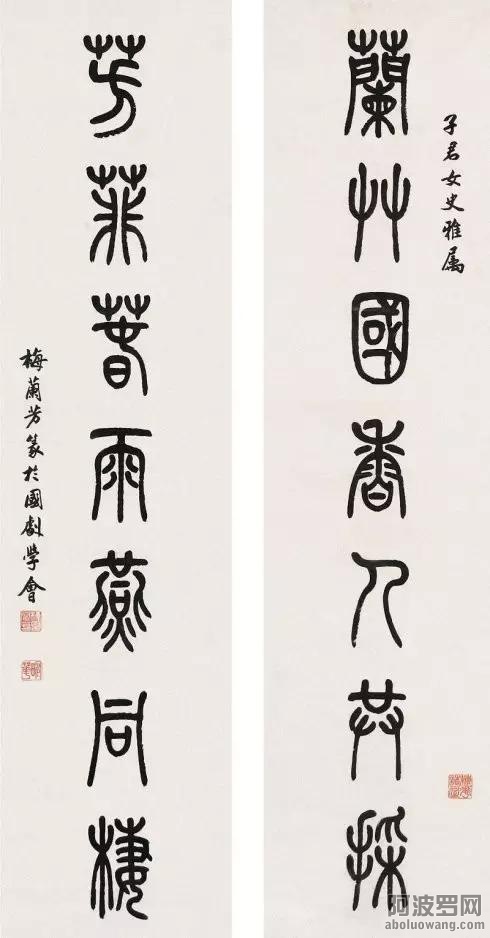 子君女史雅属
蘭艸國香人共採
芳菲春雨燕同棲
梅蘭芳篆於國劇學會
阿波罗网
aboluowang.com